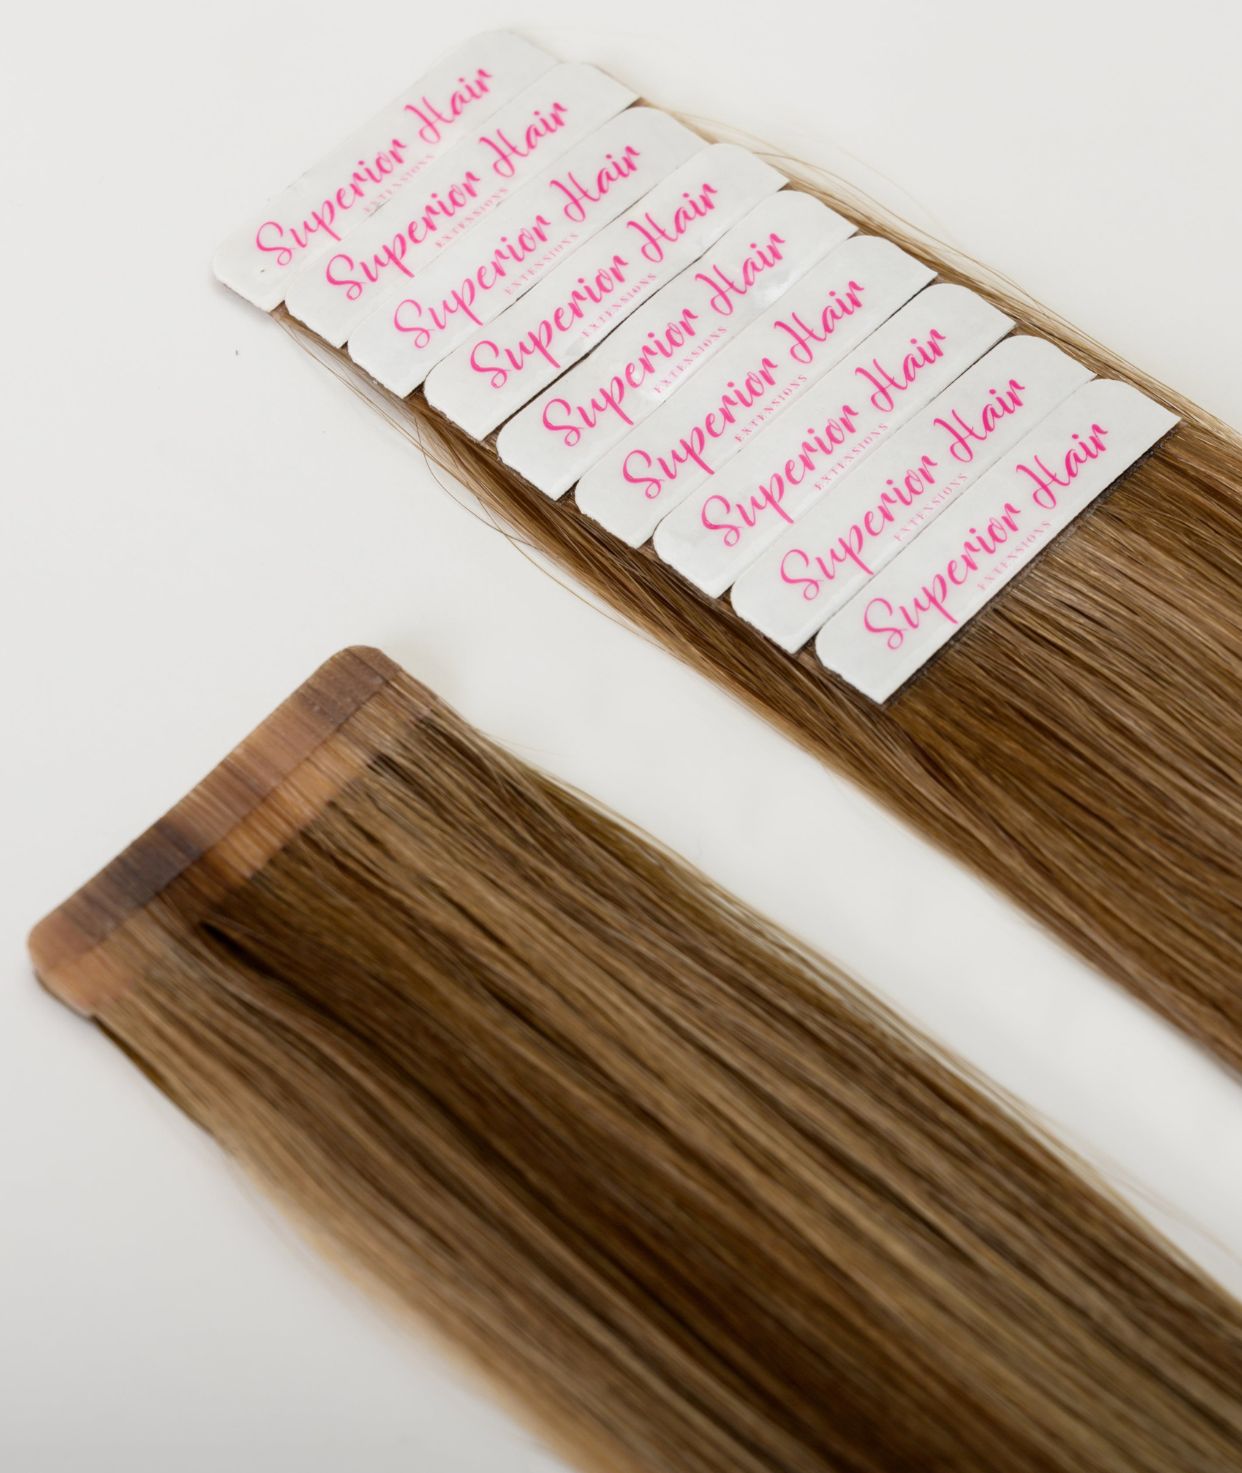 Superior Hair
EXTENSIONS
Superior Hair
EXTENSIONS
Superior Hair
EXTENSIONS
Superior Hair
EXTENSIONS
Superior Hair
EXTENSIONS
Superior Hair
EXTENSIONS
Superior Hair
EXTENSIONS
Superior Hair
EXTENSIONS
Superior Hair
EXTENSIONS